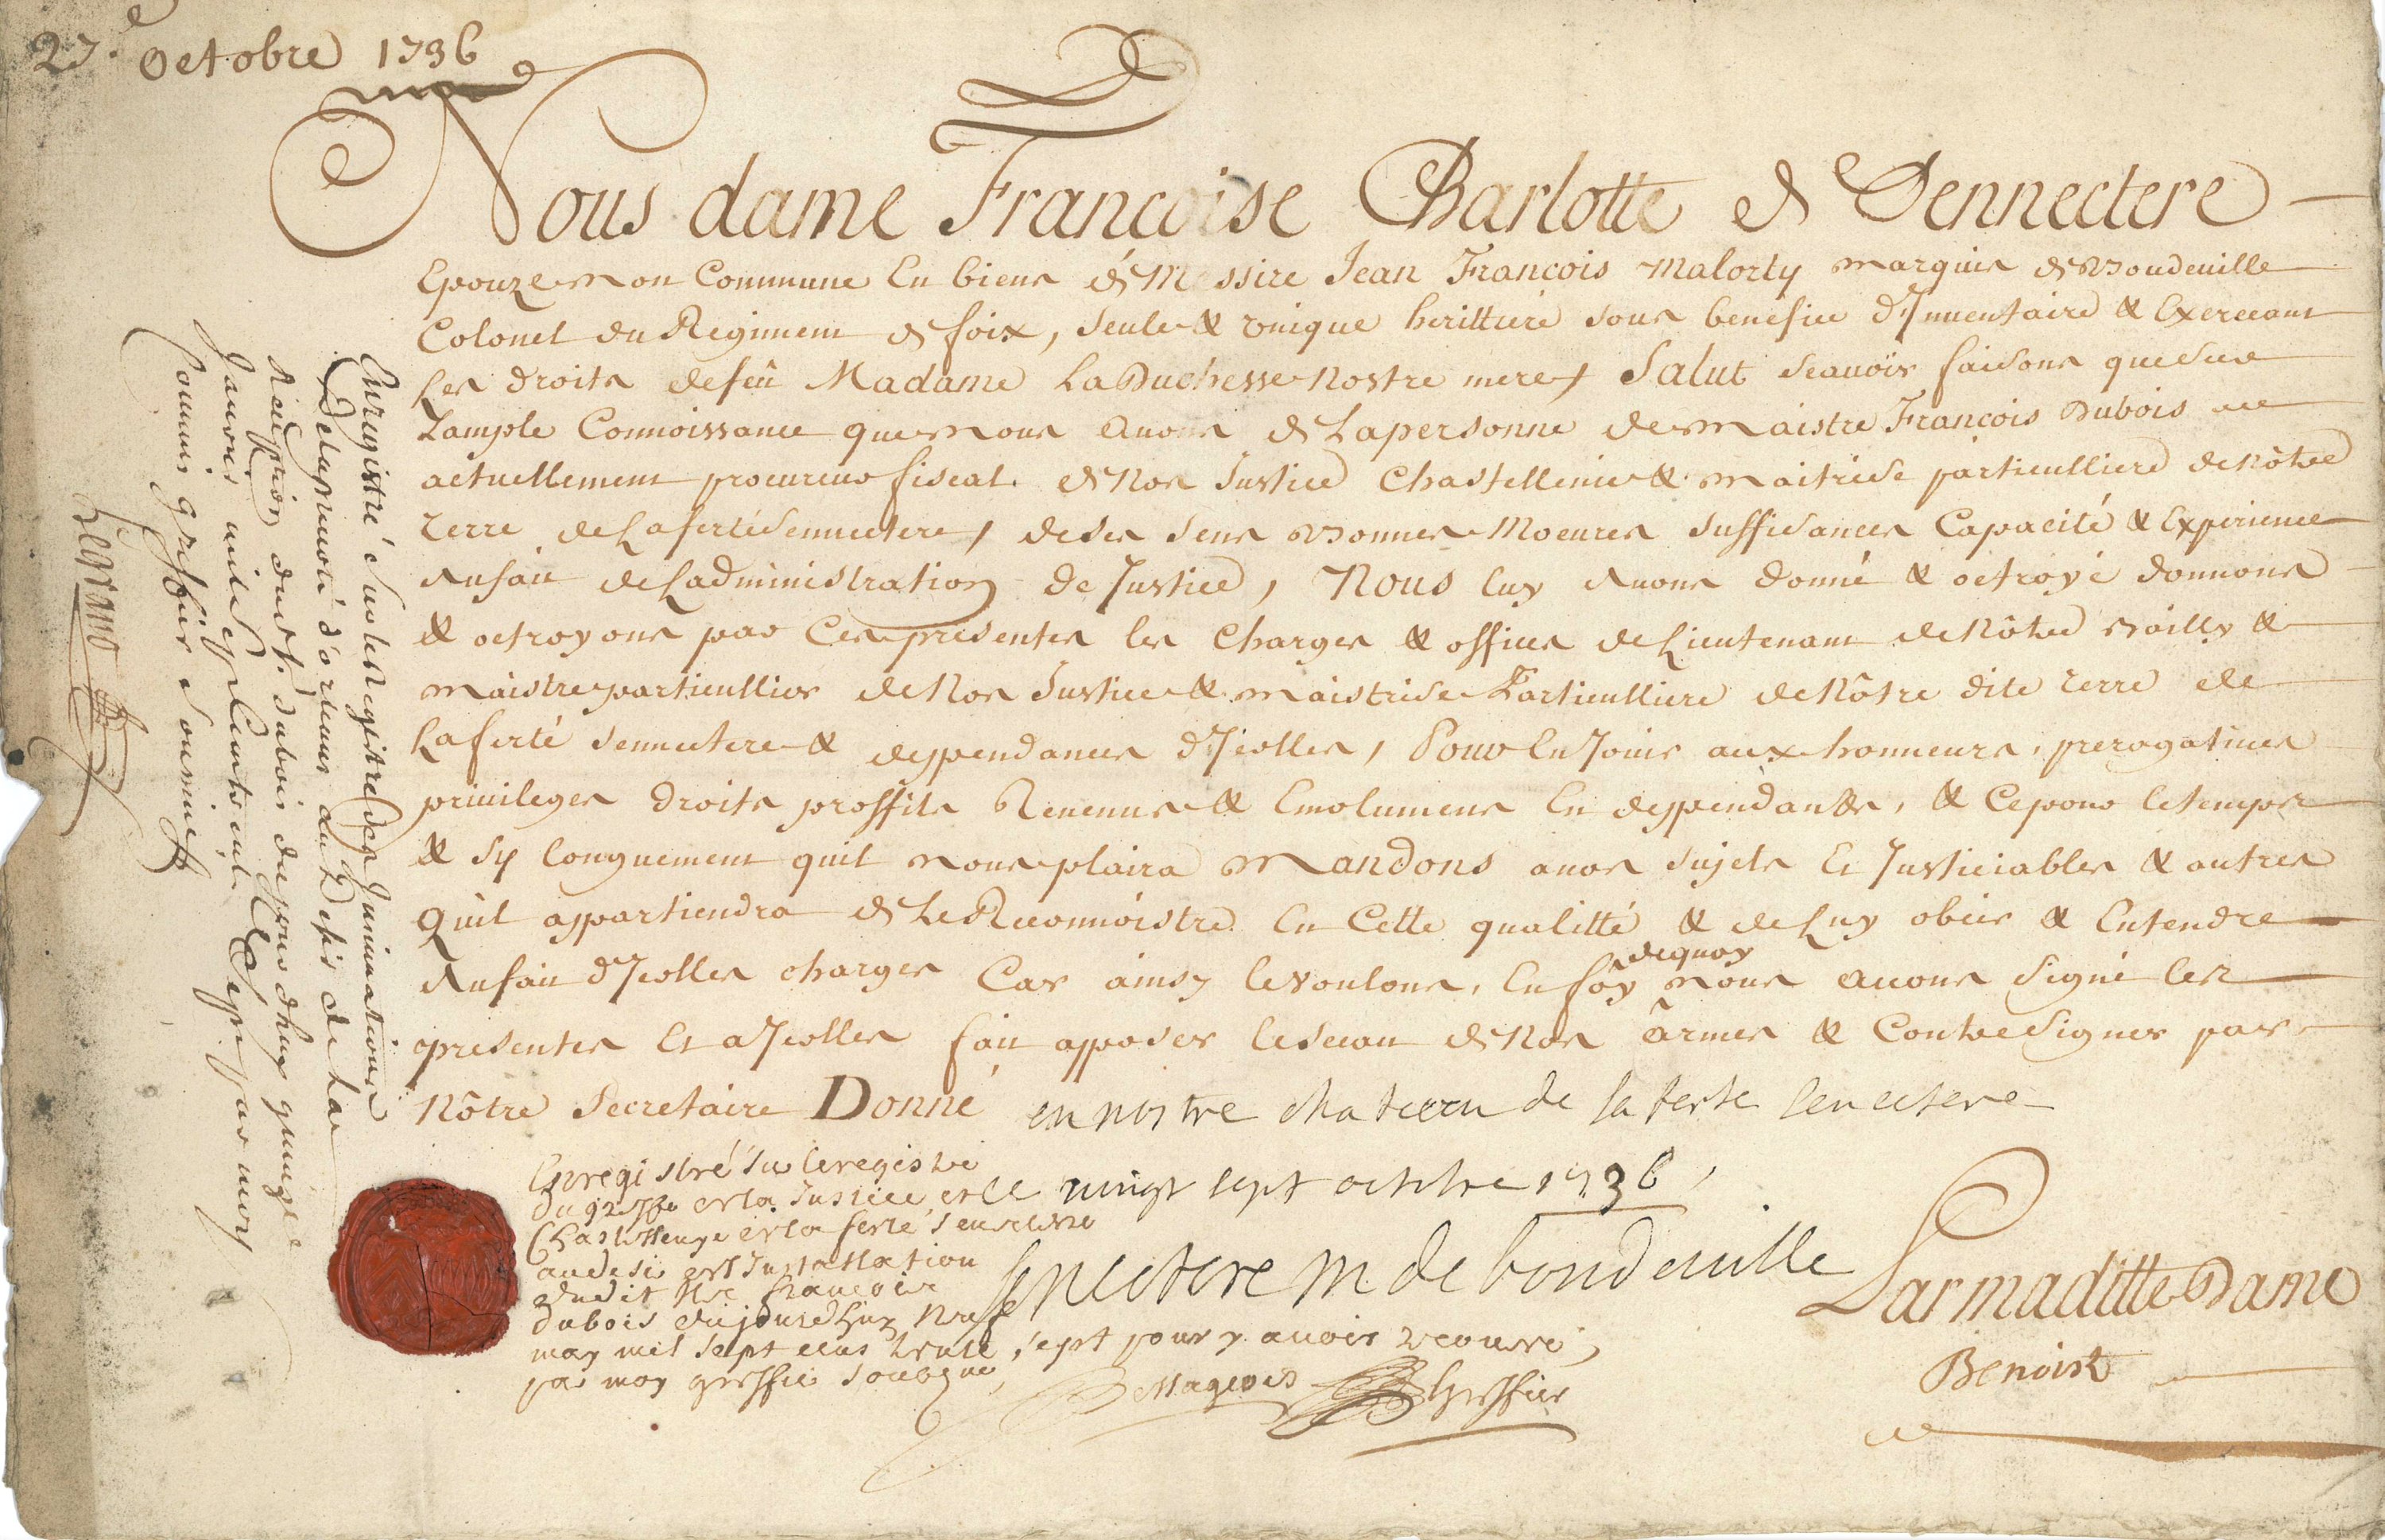 27e Octobre 1736
Nous dame Francoise Charlotte de Sennectere
Epouze non Commune En biens de Messire Jean Francois Malorty marquis de Boudeuille
Colonel du Regiment de foix, seule & vnique herittiere sous benefice d'Jnuentaire & Exerceant
Les droits defeû Madame La Duchesse Nostre mere, Salut scauoir faisons que sur
Lample Connoissance que nous Auons de Lapersonne de maistre François Dubois
actuellement procureur fiscal de Nos Justice Chastellenie & maitrise particulliere de Nôtre
Terre de Laferté Sennectere, de ses sens Bonnes Moeures suffisances Capacité & Experience
Aufait de Ladministration de Justice, Nous luy Auons donné & octroyé donnons
& octroyons par Ces presentes les Charges & offices de Lieutenant de Nôtre Bailly &
maistre particullier de Nos Justice & maistrise Particulliere de Nôtre dite Terre de
Laferté Sennectere & deppendances d'Jcelles, Pour En Jouir aux honneurs, prerogatiues
priuileges droits proffits Reuenus & Emolumens En deppendants, & Cepour letemps
& sy longuement quil nous plaira Mandons anos sujets Et Justiciables & autres
Quil appartiendra de Le Reconnoistre En Cette qualitté & de Luy obeir & Entendre
Aufait d'Jcelles charges Car ainsy levoulons, En foy dequoy nous auons signé les
presentes Et aJcelles fait apposer lesceau de Nos Armes & Contresigner par
Nôtre Secretaire Donné en nostre chateau de la ferte senectere
le vingt sept octobre 1736
Senectere m de boudeuille
Par maditte Dame
Benoist
Enregistré sur leregistre
du greffe de la Justice et
Chastellenye de la ferté senectere
audesir de l'Installation
dudit Me francois
dubois cejourdhuy Neuf
may mil sept cens trente sept pour y auoir recours
par moy greffier soubzigné
Greffier
Enregistré sur les Registres des Jnsinuations
De la preuosté d'orleans au Desir de La
Reception dudt. Dubois de jour dhuy quinzle
Januier mil sept cents trente sept par moy
Commis greffier soussigné
Legrand